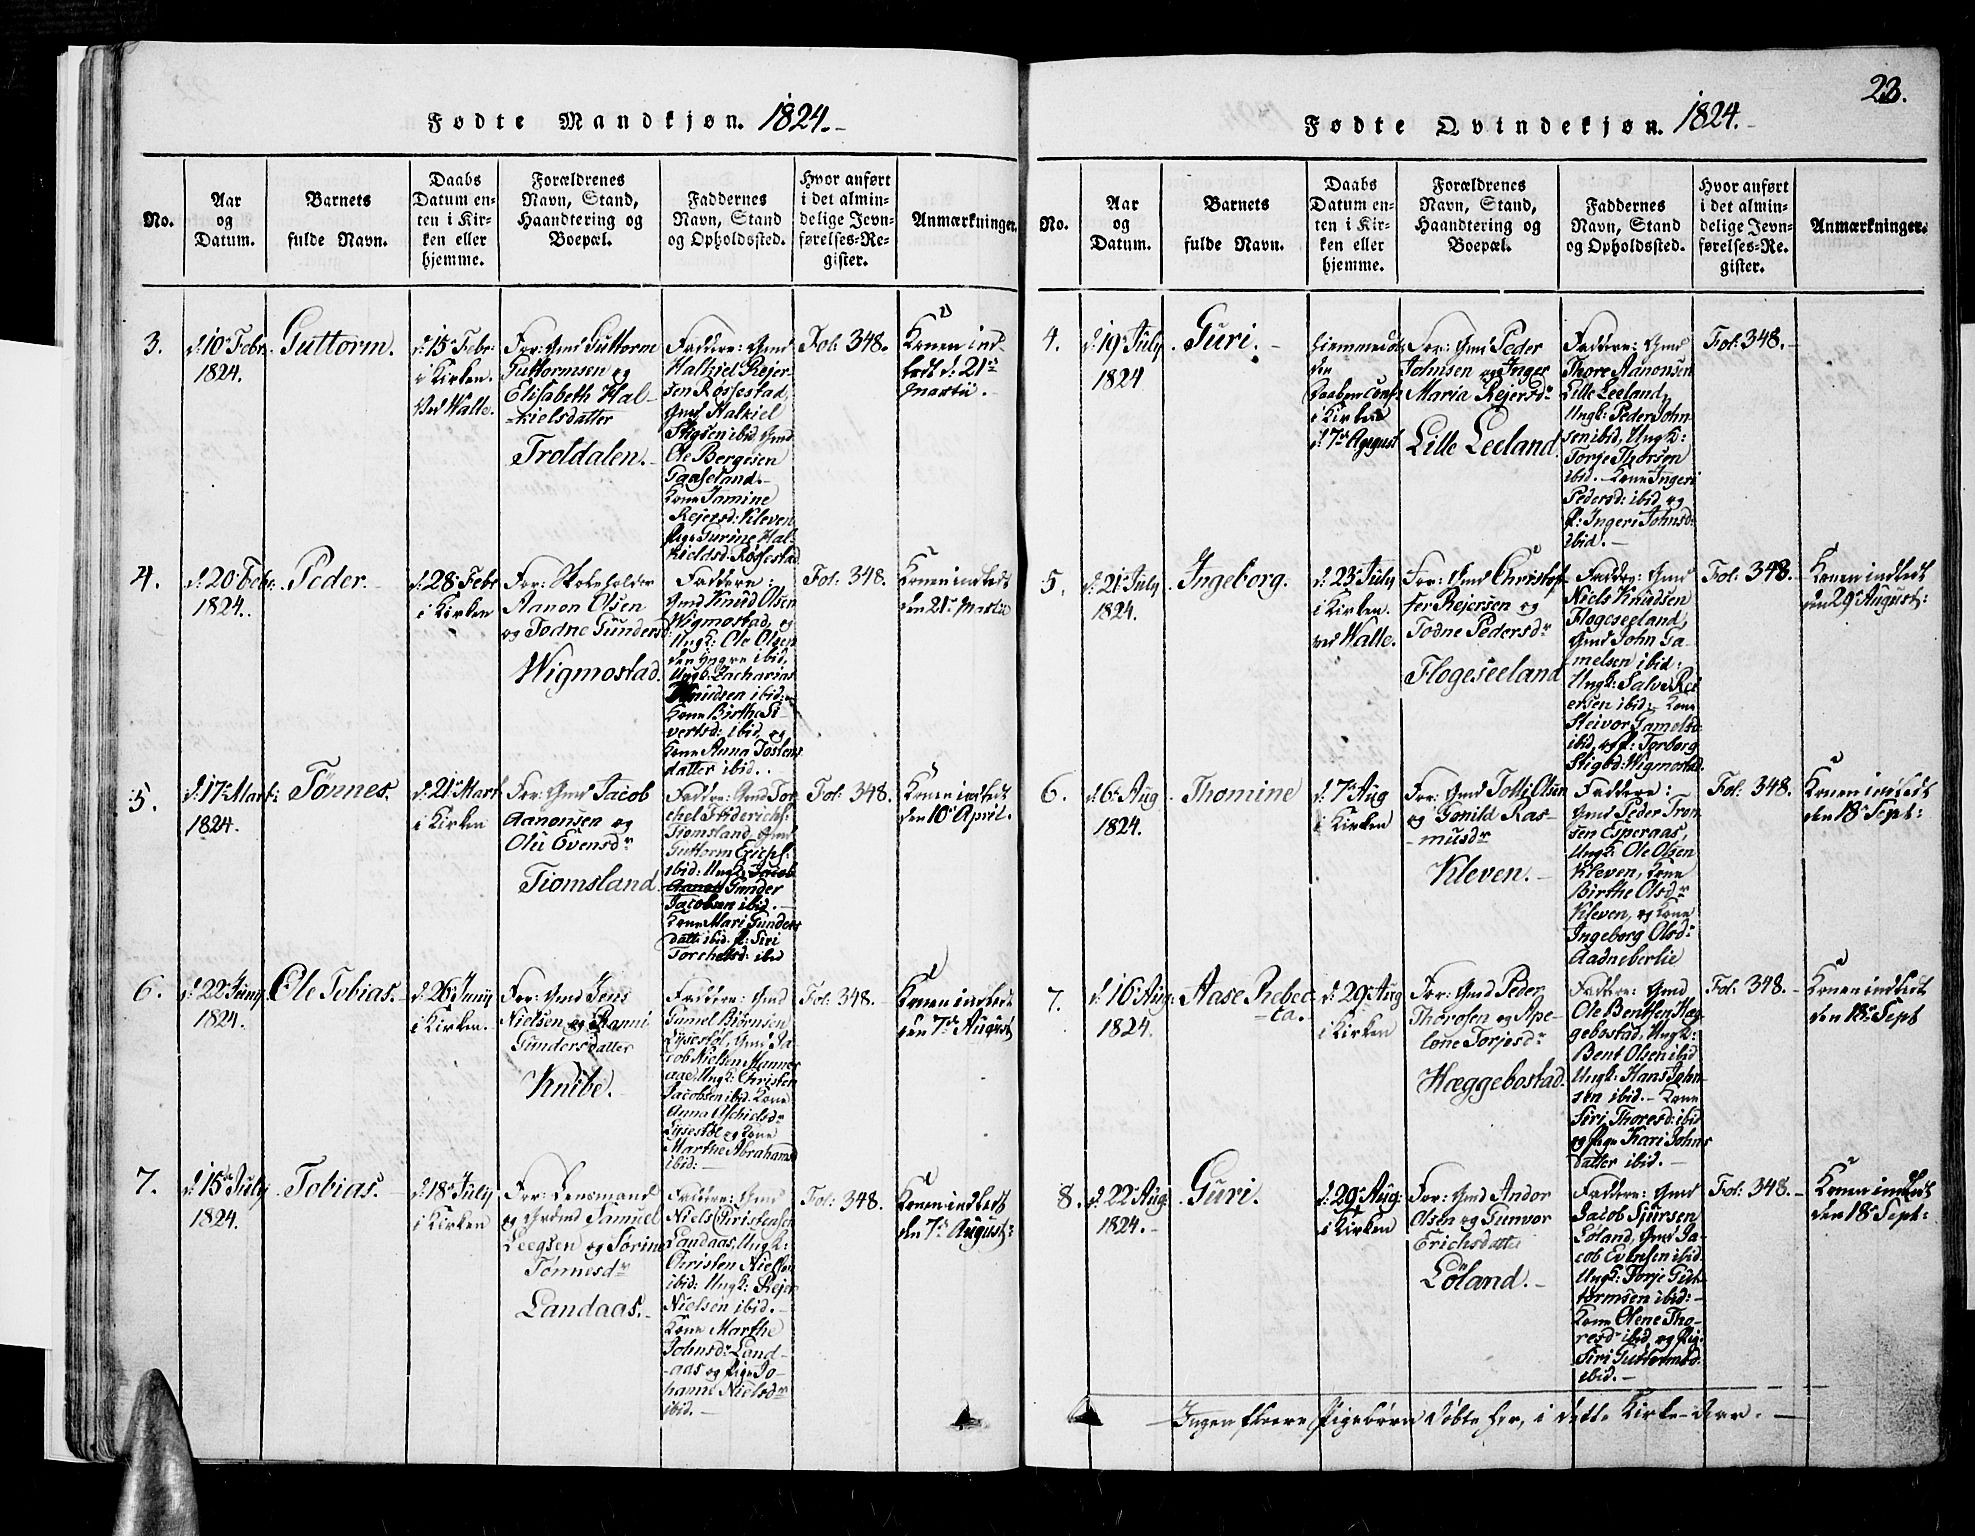 Fødte Mandkjøn. 1824.
No.
Aar
og
Datum.
Barnets
fulde Navn.
Daabs
Datum en-
ten i Kir-
ken eller
hjemme.
Forældrenes
Navn, Stand,
Haandtering og
Boepæl.
Faddernes
Navn, Stand
og Opholdssted.
Hvor anført
i det almin-
delige Jevn-
førelses-Re-
gister.
Anmærkninger.
3.
d: 10 Febr
1824.
Guttorm.
d: 15 Febr:
i Kirken
ved Walle.
For: Gmd Guttorm
Guttormsen og
Elisabeth Hal-
kielsdatter
Troldalen.
Faddere: Gmd
Halkiel Rejer
sen Røssestad,
Gmd Halkiel
Stigsen ibid, Gmd
Ole Bergesen
Gaaseland.
Kone Jamine
Rejersd: Kleven
Pige Gurine Hal-
kieldsd. Røssestad
Fol: 348.
Konen ind-
ledt d: 21
Martii.
4.
d: 20 Febr
1824.
Peder.
d: 28 Febr
i Kirken
For: Skoleholder
Aanon Olsen
og Todne Gundersd
Wigmostad.
Faddere:
Gmd Knud Olsen
Wigmostad, og
Ungk: Ole Olsen
den yngre ibid,
Ungk: Zacharias
Knudsen ibid:
Kone Birthe Si-
vertsd: ibid, og
Kone Anna Tostens
datter ibid.
Fol: 348.
Konen indledt
den 21 Martii
5.
d: 17 Mart:
1824.
Tønnes.
d: 21 Mart
i Kirken
For: Gmd Jacob
Aanonsen og
Olu Evensdr
Tiomsland.
Faddere: Gmd Tor-
chel Friderichs:
Tiomsland, Gmd
Guttorm Erichs:
ibid: Ungk: Jacob
Gunder
Jacobsen ibid.
Kone Mari Gunders
datt: ibid. P: Siri
Torchelsd: ibid
Fol: 348.
Konen indledt
den 10 April.
6.
d: 22 Junij
1824.
Ole Tobias.
d: 26 Junij
i Kirken.
For: Gmd Jens
Nielsen og Ranni
Gundersdatter
Knibe.
Faddere: Gmd
Gamel Biørnsen
Lysestøl, Gmd Ja-
cob Nielsen Manner
aae, Ungk: Christen
Jacobsen ibid. Kone
Anna Aschielsdr
Lysestøl og Kone
Marthe Abrahamsd
ibid:
Fol: 348.
Konen indledt
den 7 August
7.
d: 15 July
1824.
Tobias.
d: 18 July
i Kirken
For: Lensmand
og Grdmd Samuel
Leegsen og Sørine
Tønnesdr
Landaas.
Faddere: Gmd
Niels Christensen
Landaas, Ungk:
Christen Nielsen
ibid: Ungk: Rejer
Nielsen ibid.
Kone Marthe
Johnsd: Land-
aas og Pige Jo-
hanne Nielsdr
ibid.
Fol: 348.
Konen indledt
den 7 August:
23.
Fødte Qvindekjøn. 1824.
No.
Aar
og
Datum.
Barnets
fulde Navn.
Daabs
Datum en-
ten i Kir-
ken eller
hjemme.
Forældrenes
Navn, Stand,
Haandtering og
Boepæl.
Faddernes
Navn, Stand
og Opholdssted.
Hvor anført
i det almin-
delige Jevn-
førelses-Re-
gister.
Anmærkninger.
4.
d: 19 July
1824
Guri.
Daaben Conf:
i Kirken
d: 7 August
For: Gmd Peder
Johnsen og Inger
Maria Rejersdr
Lille Leeland
Faddere: Gmd
Thore Aanonsen
Lille Leeland,
Ungk: Peder John
sen ibid, Ungk:
Torje Thorsen
ibid. Kone Ingeri
Pedersd: ibid og
P: Ingeri Johnsd:
ibid.
Fol: 348.
5.
d: 21 July
1824.
Ingeborg.
d: 23 July
i Kirken
ved Walle.
For: Gmd Christof-
fer Rejersen og
Todne Pedersdr
Flogeseeland
Faddere: Gmd
Niels Knudsen
Flogeseeland,
Gmd John Ga-
melsen ibid:
Ungk: Salve Rej
ersen ibid: Kone
Steivor Gamelsd
ibid, og P: Torborg
Stigsd: Wigmostad.
Fol: 348.
Konen indledt
den 29 August:
6.
d: 6 Aug
1824.
Thomine
d: 7 Aug
i Kirken
For: Gmd Tolli Olsen
og Gonild Ras-
musdr
Kleven.
Faddere:
Gmd Peder Tron
sen Esperaas,
Ungk: Ole Olsen
Kleven, Kone
Birthe Olsdr
Kleven, og Kone
Ingeborg Olsdr
Aadneberlie
Fol: 348.
Konen indledt
den 18 Sept:
7.
d: 16 Aug:
1824.
Aase Rebec-
ca.
d: 29 Aug
i Kirken
For: Gmd Peder
Thorosen og Ape-
lone Torjesdr
Hæggebostad.
Faddere: Gmd
Ole Bentsen Hæg
gebostad, Ungk:
Bent Olsen ibid
Ungk: Hans John-
sen ibid. Kone
Siri Thoresd: ibid
og Pige Kari Johns
datter ibid.
Fol: 348.
Konen indledt
den 18 Sept
8.
d: 22 Aug
1824.
Guri.
d: 29 Aug:
i Kirken
For: Gmd Andor
Olsen og Gunvor
Erichsdatter
Löland.
Faddere: Gmd
Jacob Sjursen
Löland, Gmd Ja-
cob Evensen ibid.
Ungk: Torje Gut-
tormsen ibid:
Kone Olene Tho-
resdr ibid og Pig.
Siri Guttormsd.
ibid.
Fol: 348.
Konen indledt
den 18 Sept:
Ingen fleere Pigebørn døbte her, i dette Kirke-Aar.